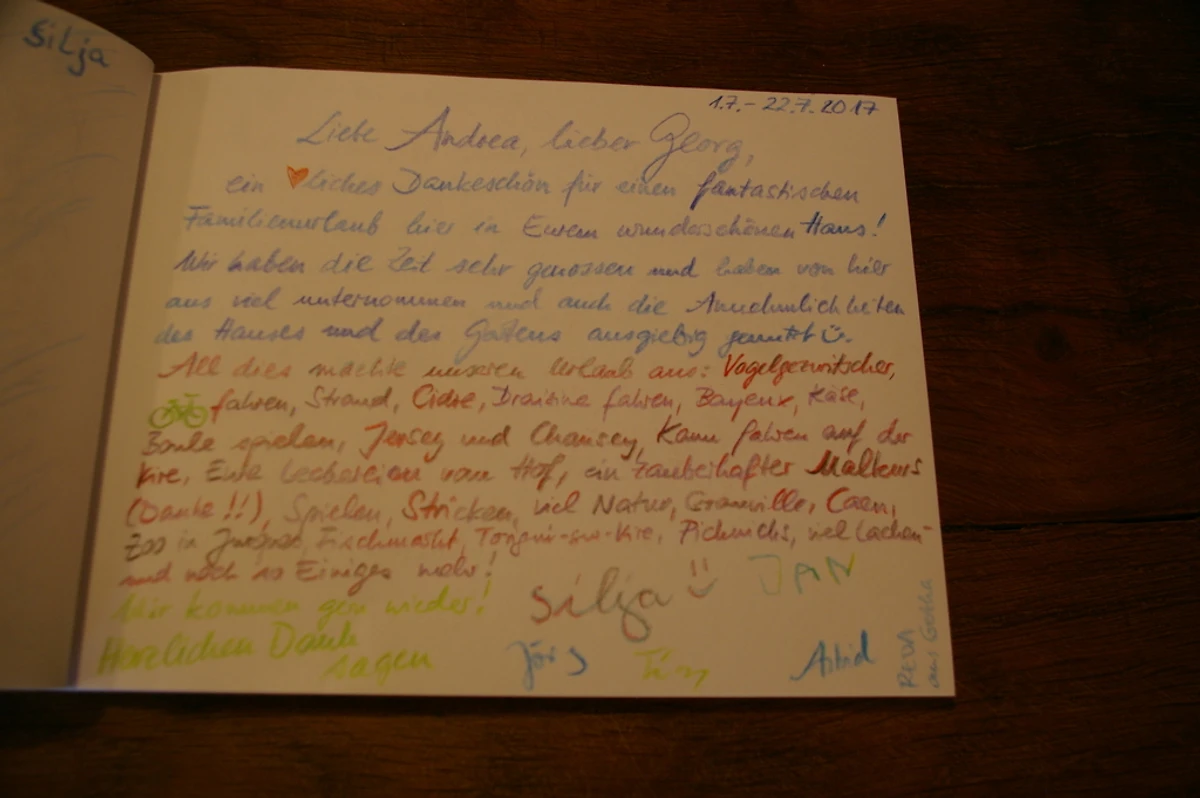 Silja
1.7. - 22.7. 2017
Liebe Andrea, lieber Georg,
ein ♥liches Dankeschön für einen fantastischen
Familienurlaub hier in Eurem wunderschönen Haus!
Wir haben die Zeit sehr genossen und haben von hier
aus viel unternommen und auch die Annehmlichkeiten
des Hauses und des Gartens ausgiebig genutzt
All dies machte unseren Urlaub aus: Vogelgezwitscher,
fahren, Strand, Cidre, Draisine fahren, Bayeux, Käse,
Boule spielen, Jersey und Chausey, Kanu fahren auf der
Vire, Eure Leckereien vom Hof, ein zauberhafter
(Danke!!), Spielen, Stricken, viel Natur, Granville, Caen,
Zoo in Fischmarkt, Torigni-sur-Vire, Picknicks, viel Lachen -
und noch so Einiges mehr!
Wir kommen gern wieder!
Herzlichen Dank
sagen
Silja
JAN
Jörg
Tim
Astrid
aus Gotha